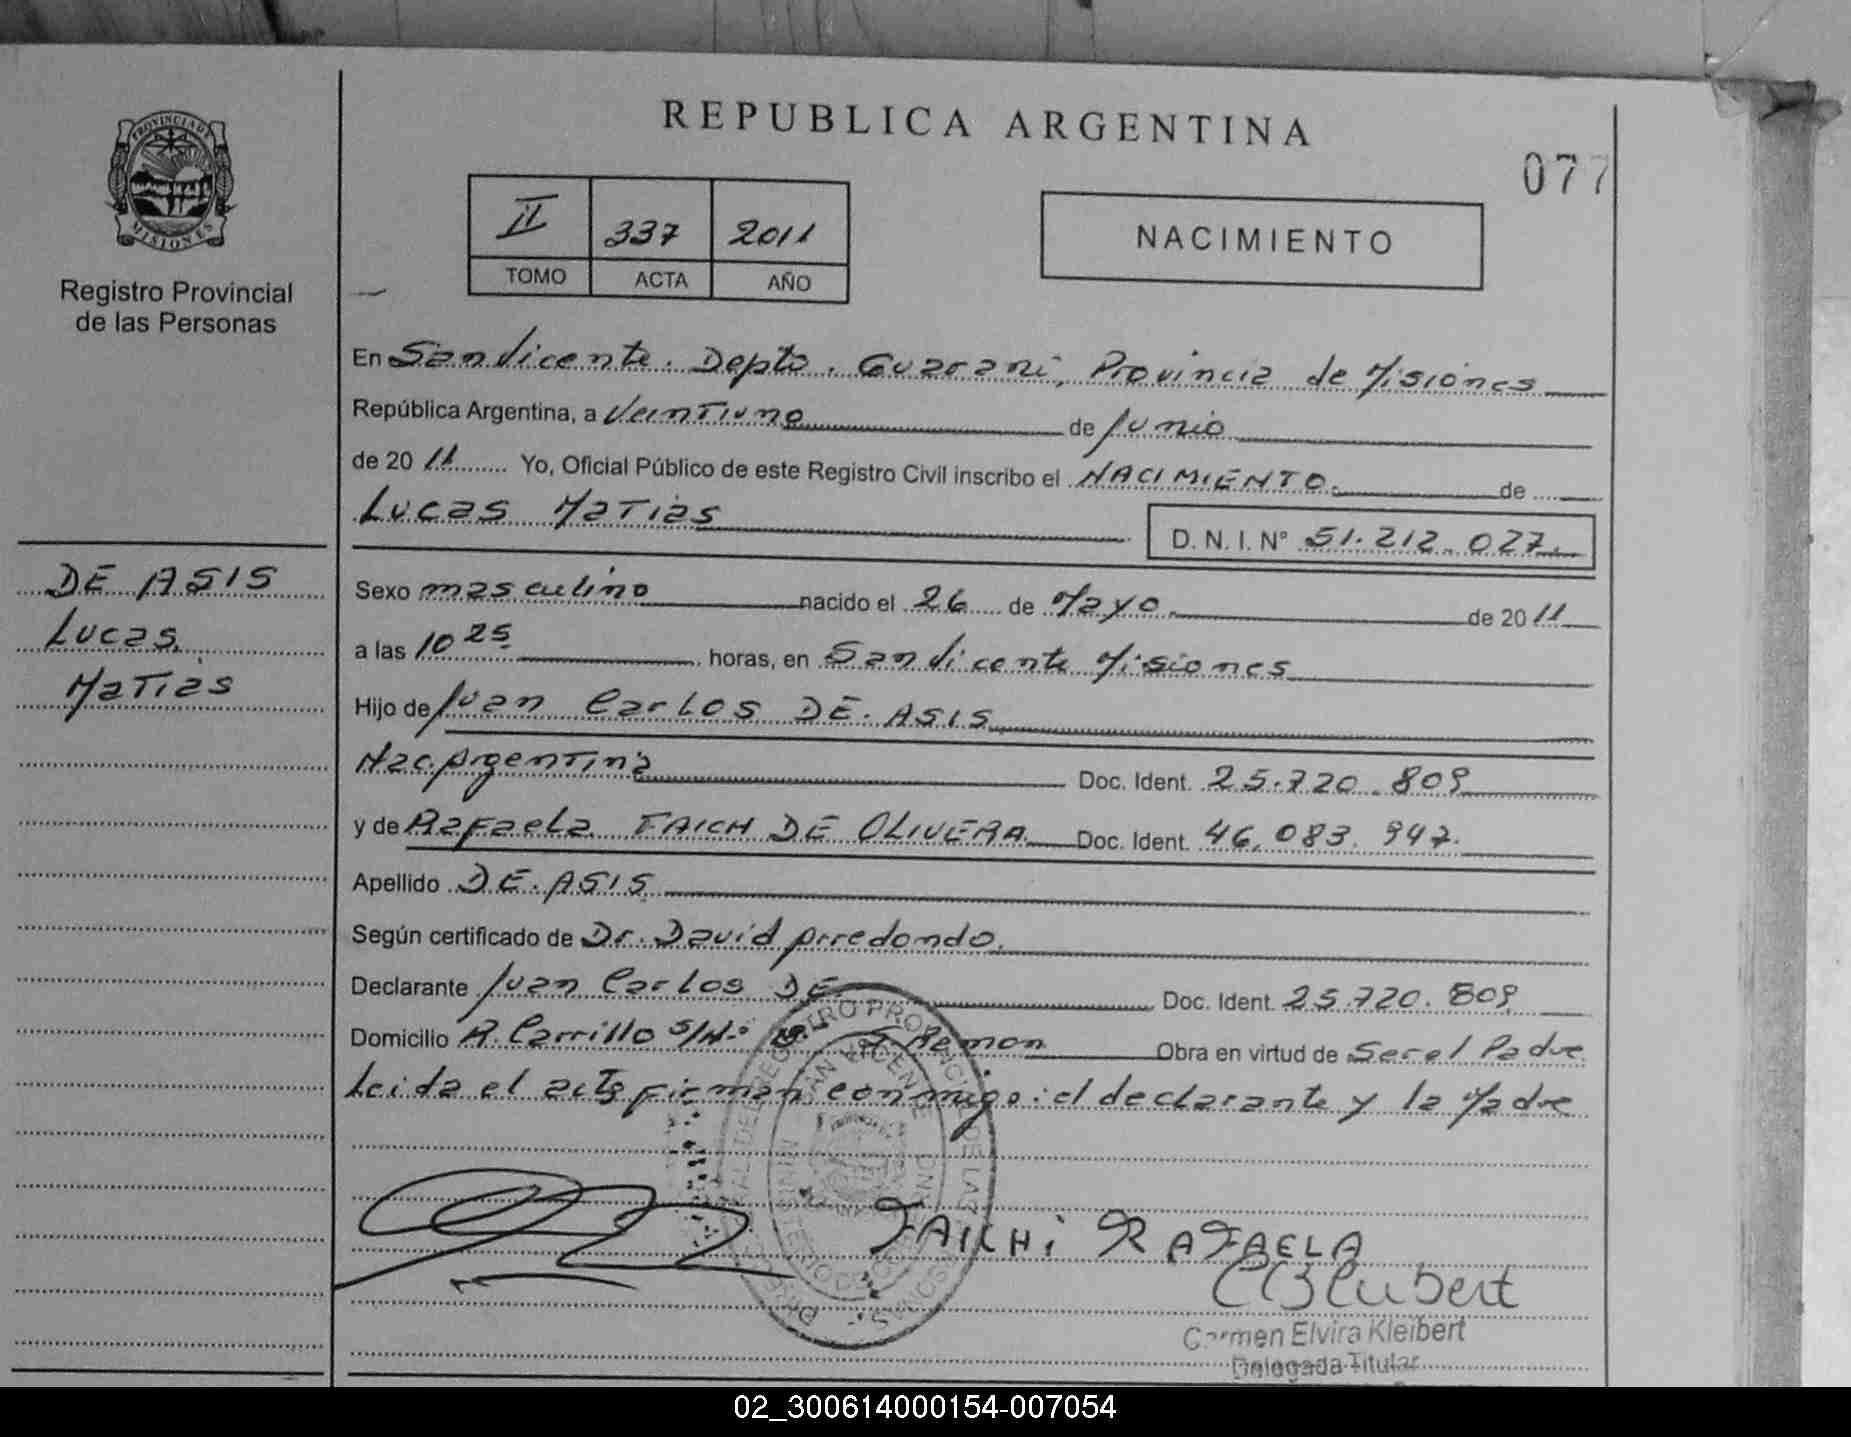 REPUBLICA ARGENTINA
077
PROVINCIA DE
MISIONES
Registro Provincial
de las Personas
II 337 2011
TOMO ACTA AÑO
NACIMIENTO
En San Vicente. Depto. Guarani, Provincia de Misiones
República Argentina, a Veintiuno de Junio
de 2011 Yo, Oficial Público de este Registro Civil inscribo el NACIMIENTO. de
Lucas Matias
D. N. I. Nº 51.212.027.
DE ASIS
Lucas
Matias
Sexo masculino nacido el 26 de Mayo de 2011
a las 10 25 horas, en San Vicente Misiones
Hijo de Juan Carlos DE ASIS
Nac. Argentina Doc. Ident. 25.720.809
y de Rafaela FAICH DE OLIVERA Doc. Ident. 46.083.947.
Apellido DE ASIS
Según certificado de Dr. David Arredondo.
Declarante Juan Carlos DE Doc. Ident. 25.720.809
Domicilio A. Carrillo S/Nº Obra en virtud de Ser el Padre
Leida el acta firman conmigo: el declarante y la Madre
SAN VICENTE
TAICHI RAFAELA
Carmen Elvira Kleibert
Delegada Titular
02_300614000154-007054